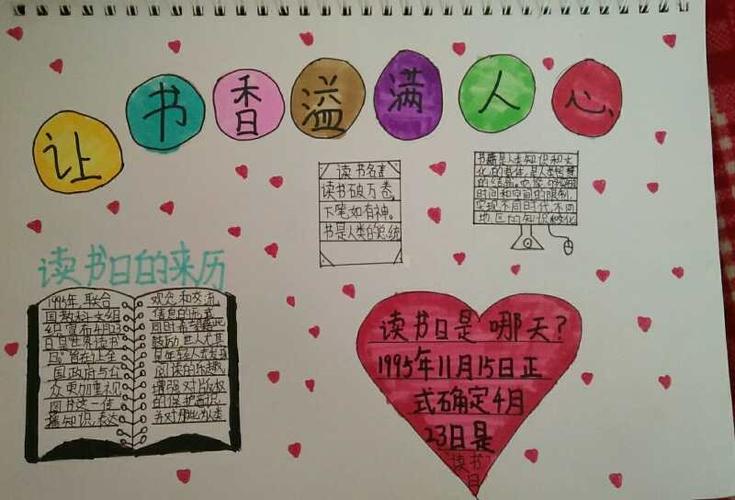 让书香溢满人心
读书名言
读书破万卷,
下笔如有神。
书是人类的总统
书籍是人类知识和文
化的载体,是人类智慧
时间和空间的限制,
实现不同时代、不同
地区的知识
读书日的来历
1995年,联合
国教科文组
织宣布4月23
日为世界读书
国政府与公
众更加重视
图书这一传
播知识、表达
观念和交流
信息的形式
同时希望藉此
鼓励世人尤其
是年轻人去发现
阅读的乐趣
增强对版权
的保护意识
读书日是哪天?
1995年11月15日正
式确定4月
23日是
"读书
日